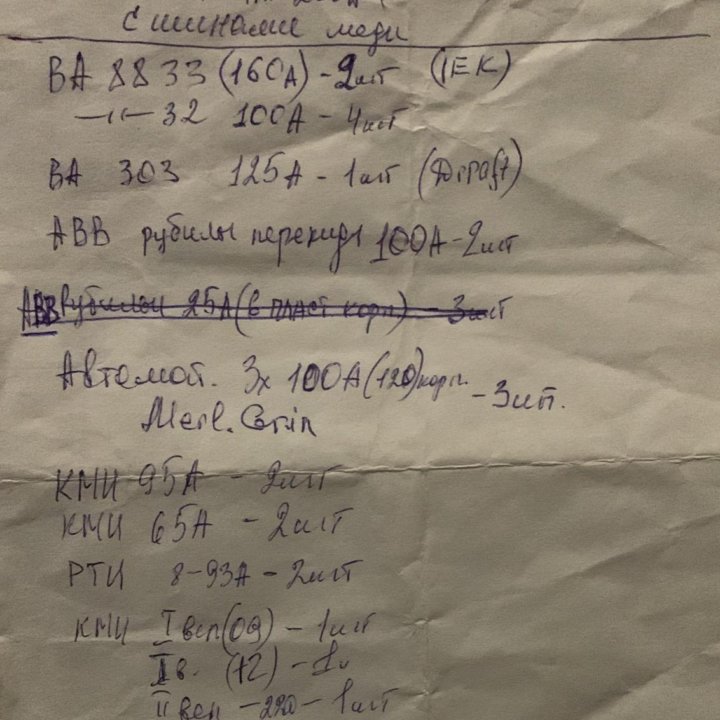 с шинами меди
ВА 8833 (160А) - 2шт (IEK)
—〃— 32 100А - 4шт
ВА 303 125А - 1шт (Draft)
АВВ рубилы перекидн 100А - 2шт
АВВ Рубильн 25А (в пласт корп) - 3шт
Автомат. 3х 100А (120) корп. - 3шт.
Merl. Gerin
КМИ 95А - 2шт
КМИ 65А - 2шт
РТИ 8-93А - 2шт
КМИ I всп (09) - 1шт
II в. (12) - 1
II всп - 220 - 1шт